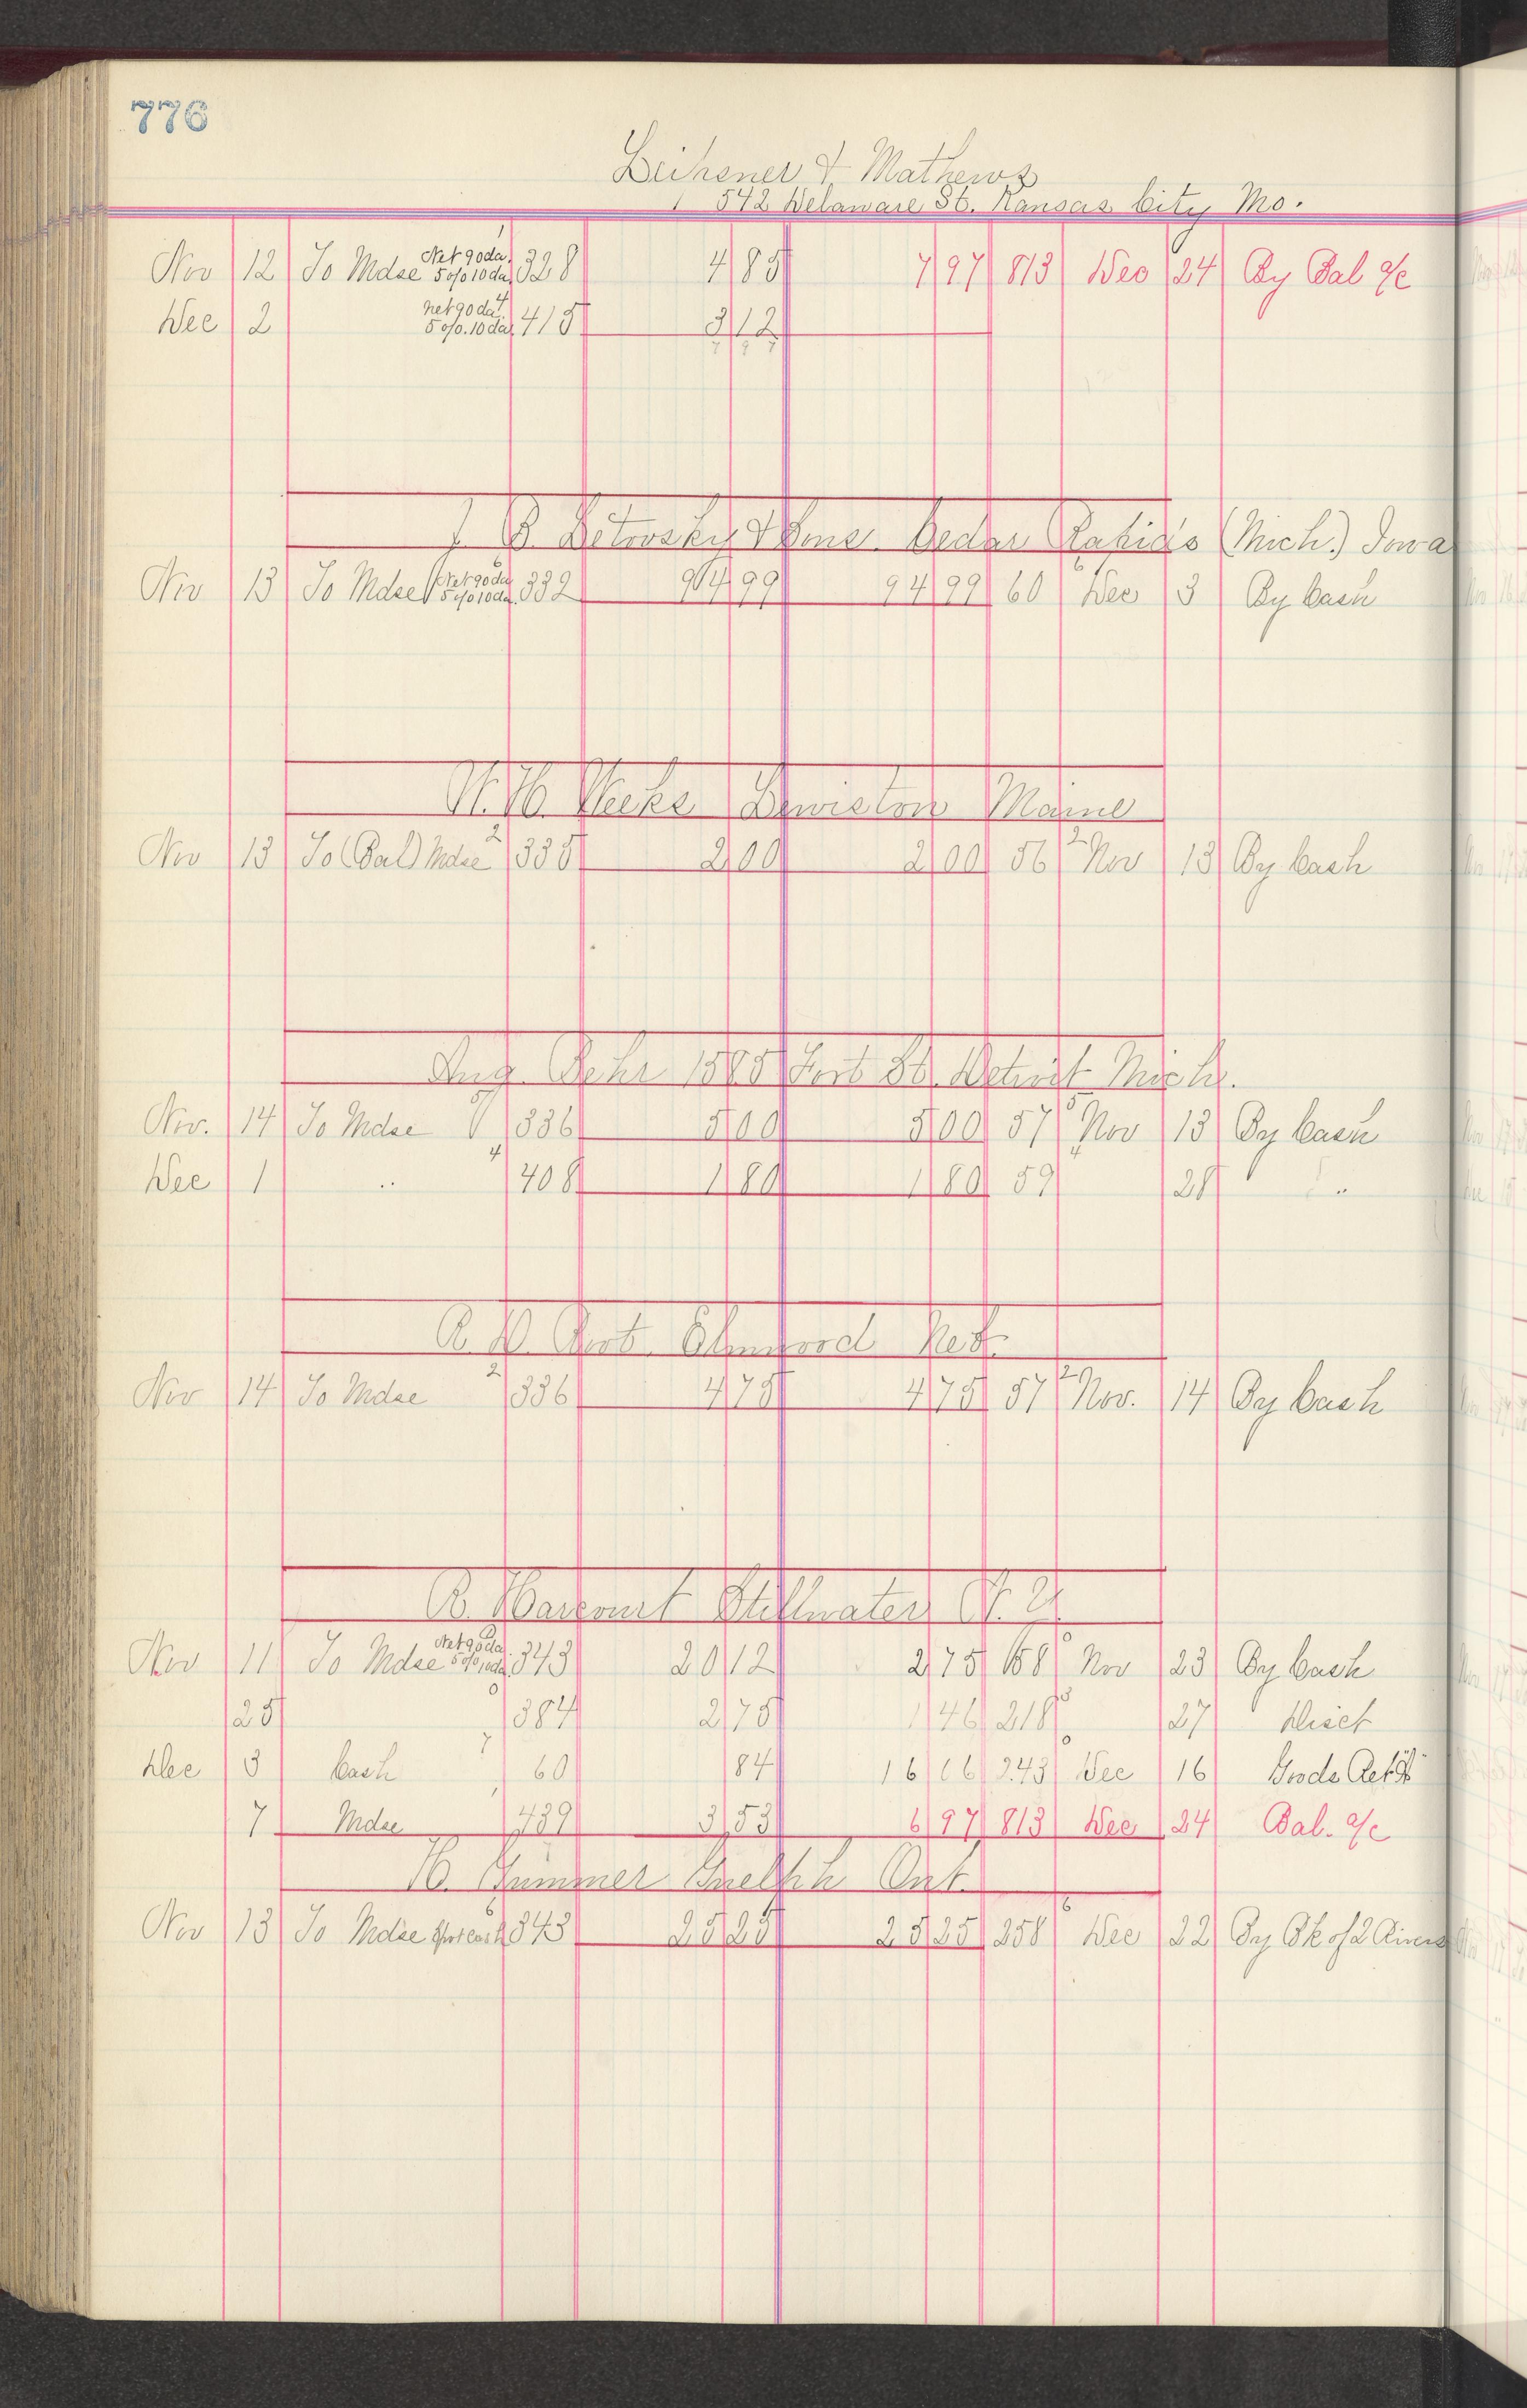 776
Leihsner & Mathews
542 Delaware St. Kansas City Mo.
Nov 12 To Mdse Net 90 da. 5 o/o 10 da. 328 4 85 7 97 813 Dec 24 By Bal a/c
Dec 2 net 90 da 5 o/o. 10 da. 4 415 3 12
7 97
J. B. Detwosky & Sons. Cedar Rapids (Mich.) Iowa
Nov 13 To Mdse Net 90 da 5 o/o 10 da. 332 94 99 94 99 60 6 Dec 3 By Cash
Weeks Lewiston Maine
Nov 13 To (Bal) Mdse 2 335 2 00 2 00 56 2 Nov 13 By Cash
Aug. Behr 1505 Fort St. Detroit Mich.
Nov. 14 To Mdse 336 5 00 5 00 57 5 Nov 13 By Cash
Dec 1 " 4 408 1 80 1 80 59 4 28 "
Nov 14 To Mdse 2 336 4 75 4 75 57 2 Nov. 14 By Cash
R. Harcourt Stillwater N. Y.
Nov 11 To Mdse Net 90 da 5 o/o 10 da. 343 20 12 2 75 158 Nov 23 By Cash
25 0 384 2 75 1 46 218 27 Disct
Dec 3 Cash 7 60 84 16 06 243 Dec 16 Goods Ret'd
7 Mdse 439 3 53 6 97 813 Dec 24 Bal. a/c
H. Gummer Guelph Ont.
Nov 13 To Mdse spot cash 6 343 25 25 25 25 258 6 Dec 22 By Bk of 2 Rivers